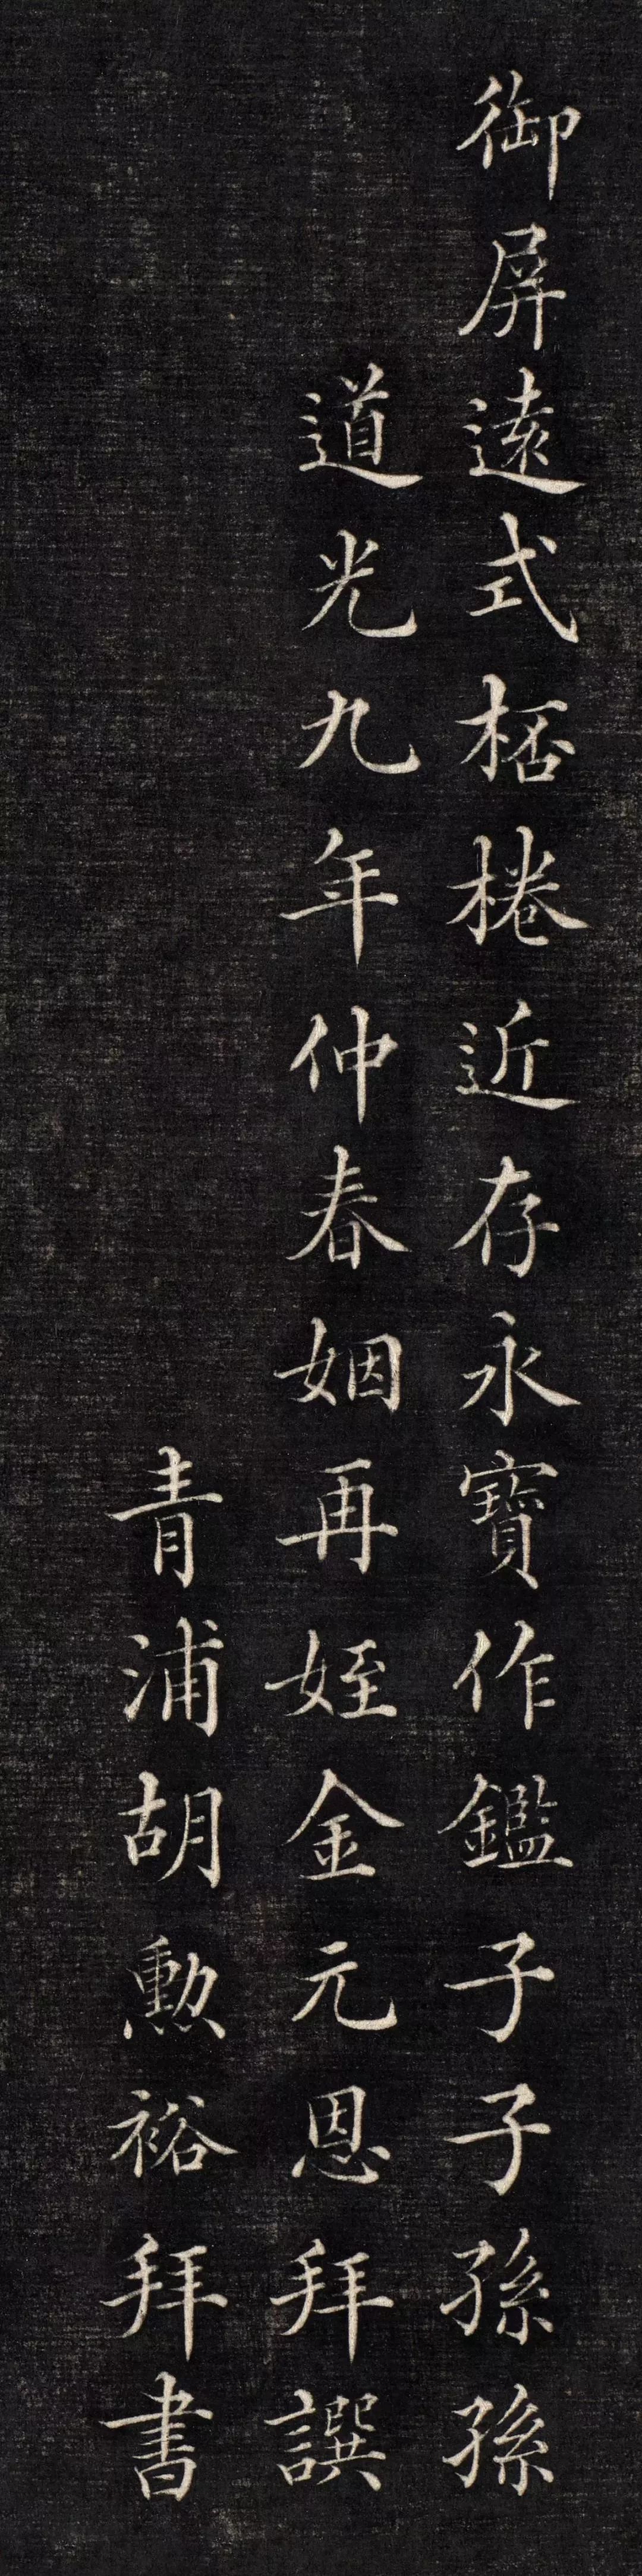 御屏遠式桮棬近存永寶作鑑子子孫孫
道光九年仲春姻再姪金元恩拜譔
青浦胡勳裕拜書